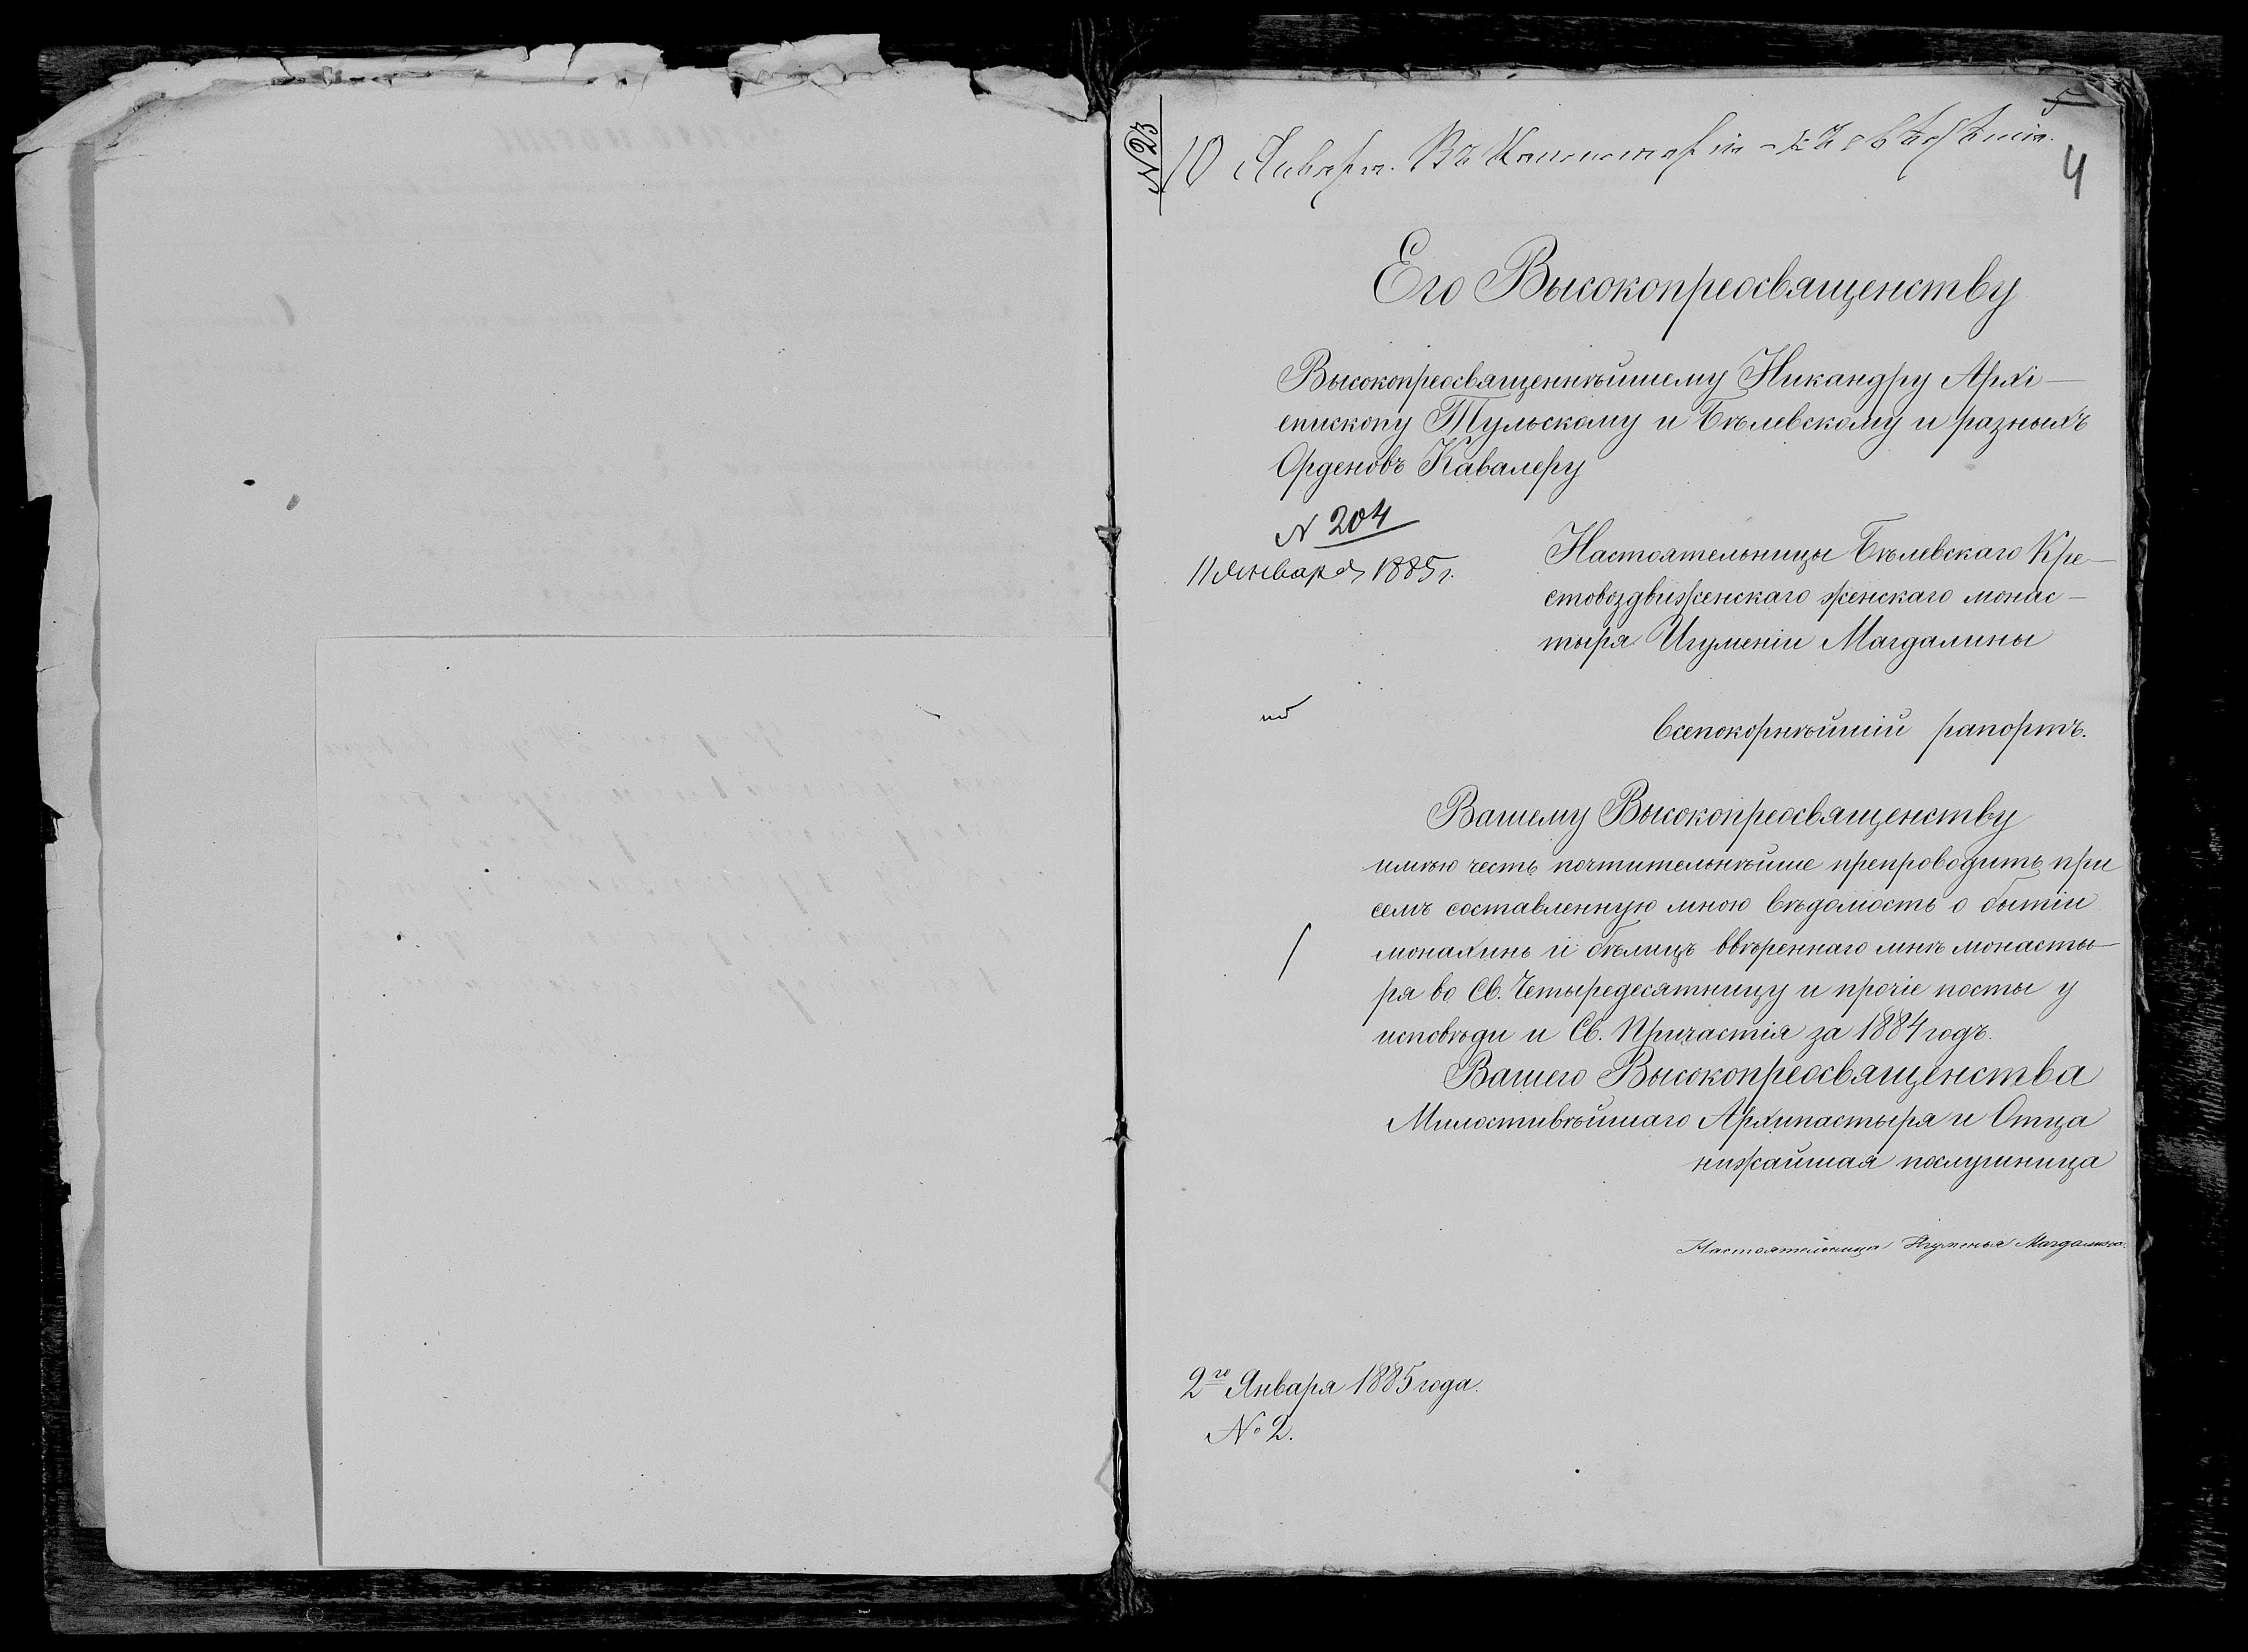 5
№ 23
10 Января. Въ Консисторію - къ свѣдѣнію.
4
Его Высокопреосвященству
Высокопреосвященнѣйшему Никандру Архі-
епископу Тульскому и Бѣлевскому и разныхъ
Орденовъ Кавалеру
№ 204
11 Января 1885 г.
Настоятельницы Бѣлевскаго Кре-
стовоздвиженскаго женскаго монас-
тыря Игуменіи Магдалины
Всепокорнѣйшій рапортъ.
Вашему Высокопреосвященству
имѣю честь почтительнѣйше препроводить при
семъ составленную мною вѣдомость о бытіи
монахинь и бѣлицъ ввѣреннаго мнѣ монасты-
ря во Св. Четыредесятницу и прочіе посты у
исповѣди и Св. Причастія за 1884 годъ.
Вашего Высокопреосвященства
Милостивѣйшаго Архипастыря и Отца
нижайшая послушница
Настоятельница Игуменья Магдалина.
2го Января 1885 года.
№ 2.